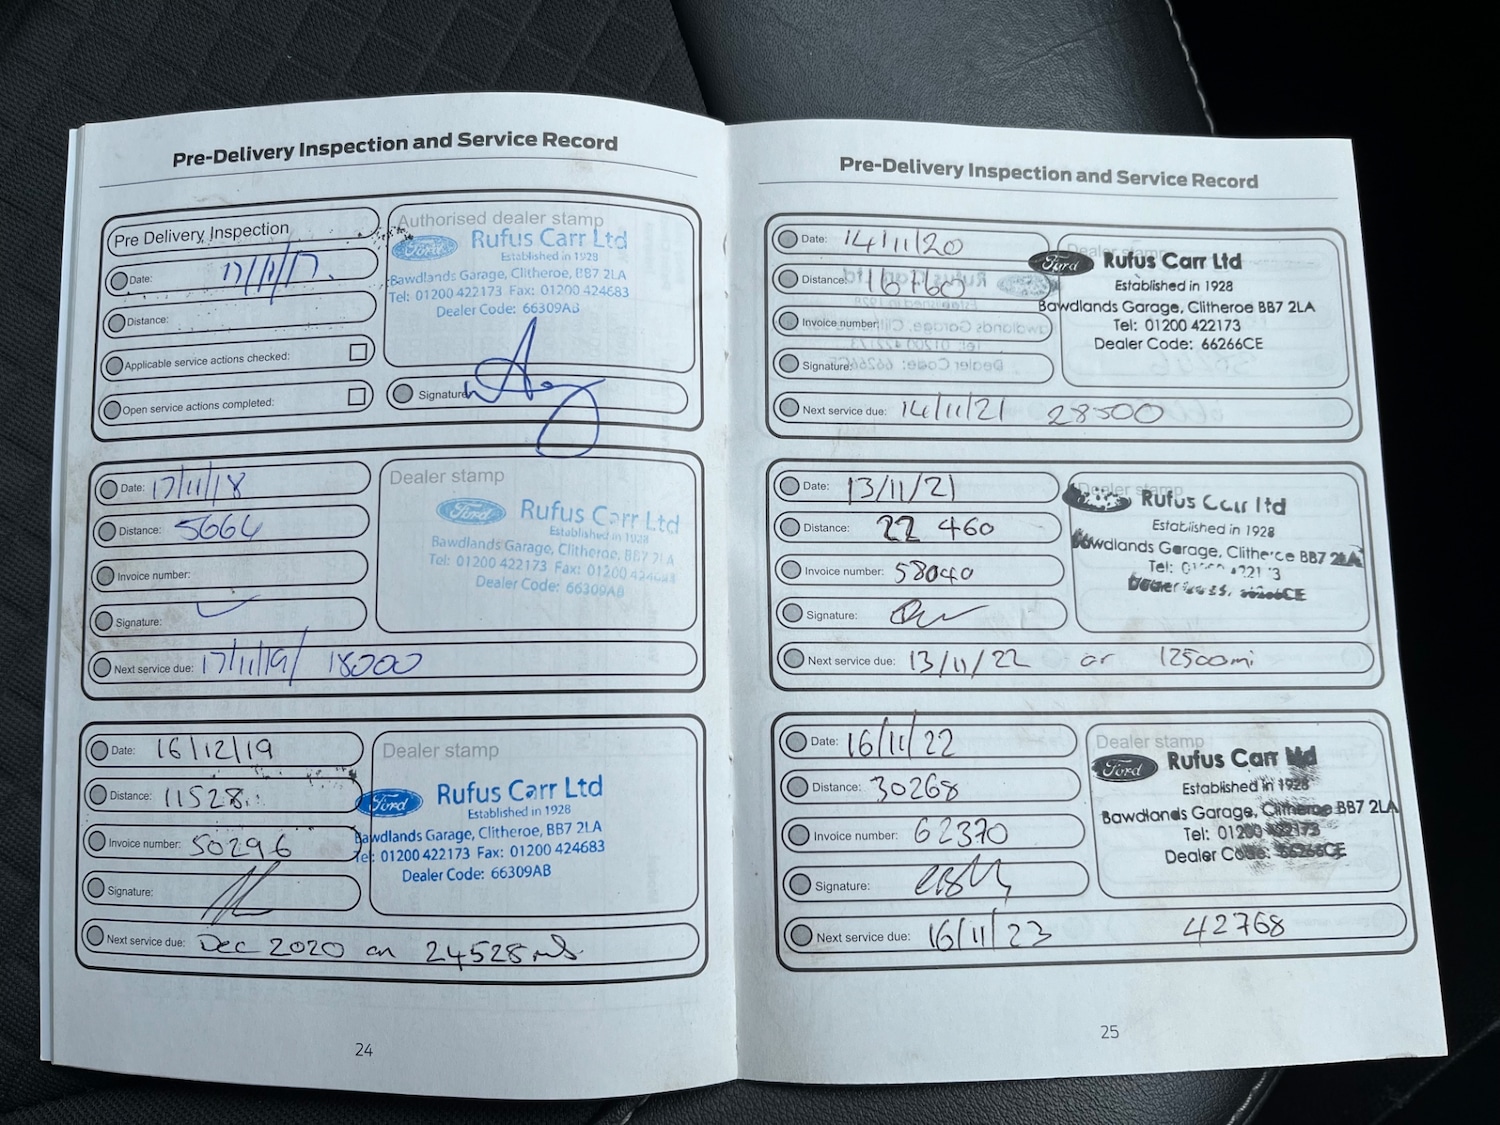 Pre-Delivery Inspection and Service Record
Pre Delivery Inspection
Date: 17/11/17.
Distance:
Applicable service actions checked:
Open service actions completed:
Authorised dealer stamp
Ford Rufus Carr Ltd
Established in 1928
Bawdlands Garage, Clitheroe, BB7 2LA
Tel: 01200 422173 Fax: 01200 424683
Dealer Code: 66309AB
Signature
Date: 17/11/18
Distance: 5664
Invoice number:
Signature:
Next service due: 17/11/19/ 18000
Dealer stamp
Ford Rufus Carr Ltd
Established in 1928
Bawdlands Garage, Clitheroe, BB7 2LA
Tel: 01200 422173 Fax: 01200 424683
Dealer Code: 66309AB
Date: 16/12/19
Distance: 11528
Invoice number: 50296
Signature:
Next service due: Dec 2020 on 24528mls
Dealer stamp
Ford Rufus Carr Ltd
Established in 1928
Bawdlands Garage, Clitheroe, BB7 2LA
Tel: 01200 422173 Fax: 01200 424683
Dealer Code: 66309AB
24
Pre-Delivery Inspection and Service Record
Date: 14/11/20
Distance: 16760
Invoice number:
Signature:
Next service due: 14/11/21 28500
Dealer stamp
Ford Rufus Carr Ltd
Established in 1928
Bawdlands Garage, Clitheroe BB7 2LA
Tel: 01200 422173
Dealer Code: 66266CE
Date: 13/11/21
Distance: 22 460
Invoice number: 58040
Signature:
Next service due: 13/11/22 or 12500mi
Dealer stamp
Rufus Carr Ltd
Established in 1928
Bawdlands Garage, Clitheroe BB7 2LA
Tel:
Dealer
Date: 16/11/22
Distance: 30268
Invoice number: 62370
Signature:
Next service due: 16/11/23 42768
Dealer stamp
Ford Rufus Carr Ltd
Established in 1928
Bawdlands Garage, Clitheroe BB7 2LA
Tel: 01200 422173
Dealer Code: 66266CE
25